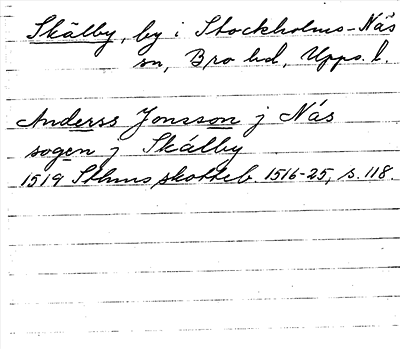 Skälby, by i Stockholms-Näs
sn, Bro hd, Upps. l.
Anderss Jonsson j Nás
sogen j Skálby
1519 Sthms skotteb. 1516-25, s. 118.